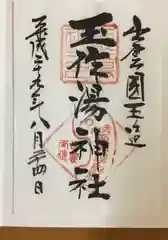 出雲國玉造
玉作湯神社
平成二十九年八月十四日